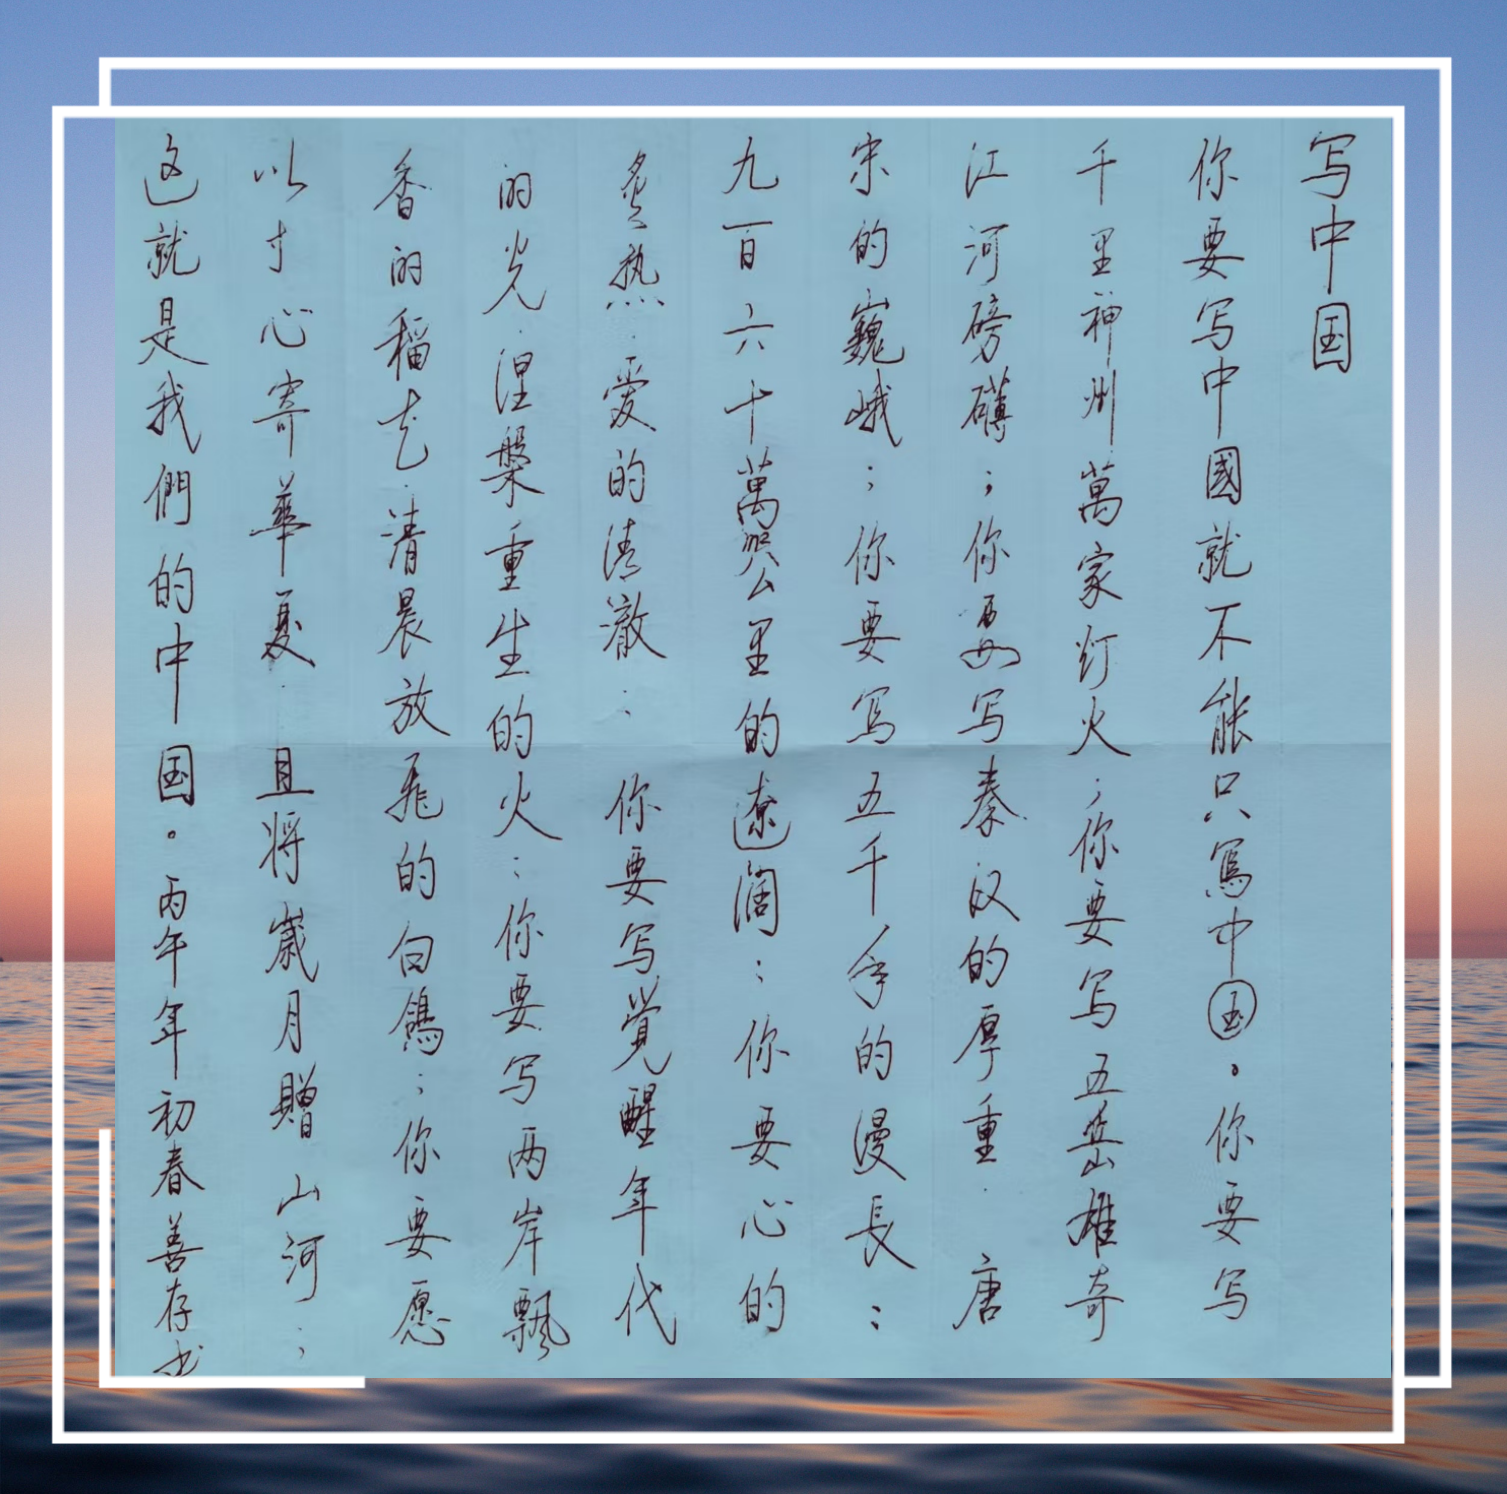 写中国
你要写中國就不能只寫中国。你要写
千里神州萬家灯火；你要写五岳雄奇
江河磅礴；你要写秦汉的厚重．唐
宋的巍峨；你要寫五千年的漫長；
九百六十萬平公里的遼阔；你要心的
炙热．爱的清澈；你要写覺醒年代
的光．涅槃重生的火；你要写两岸飘
香的稻花．清晨放飛的白鴿；你要愿
以寸心寄華夏．且将歲月贈山河；
这就是我們的中国。丙午年初春善存书